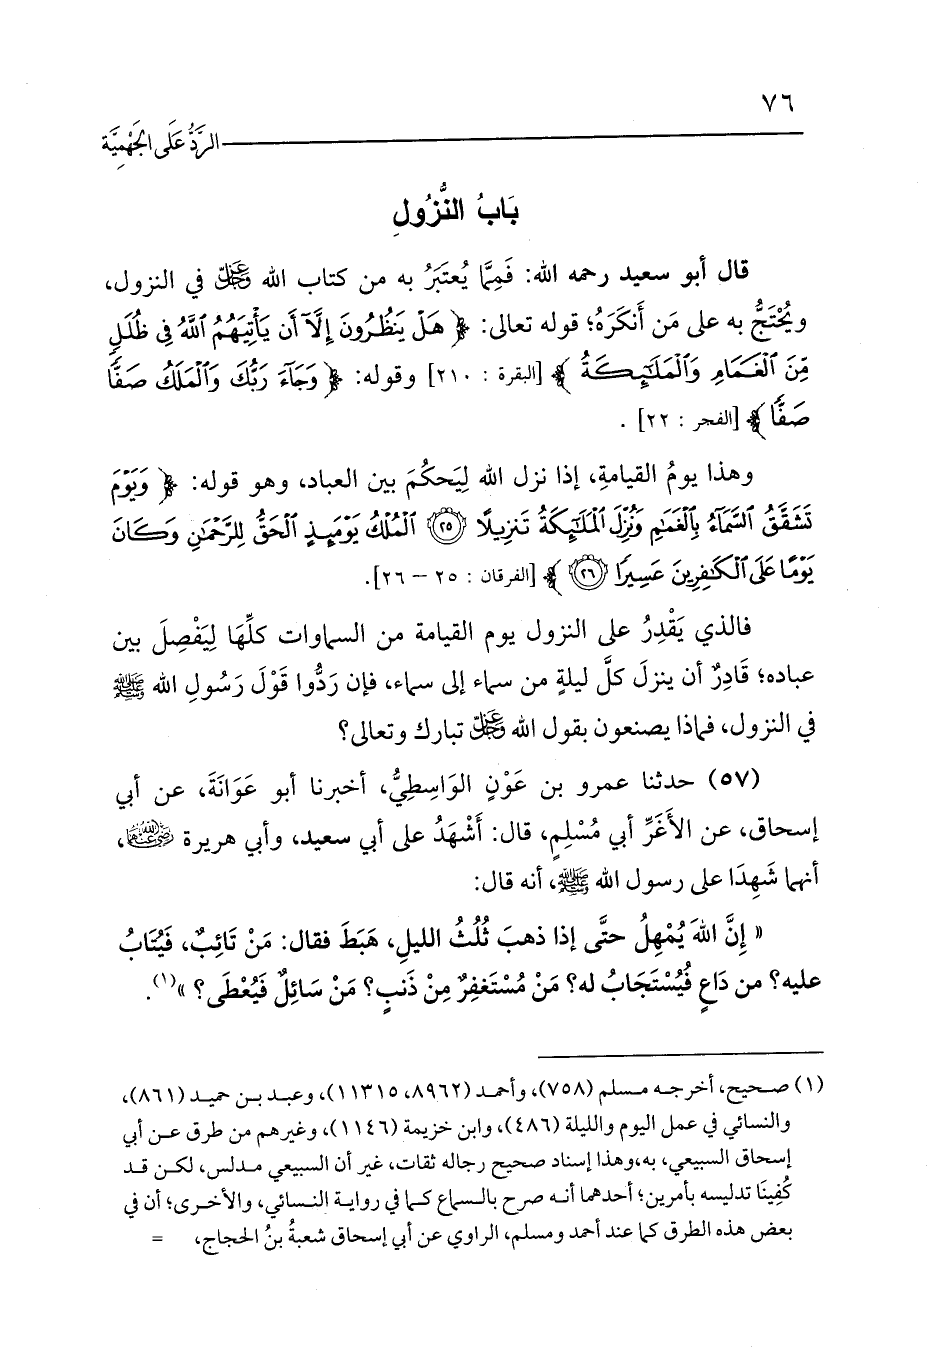 ٧٦
الرَّدُّ عَلَى الجَهْمِيَّة
بَابُ النُّزُولِ
قال أبو سعيد رحمه الله: فَمِمَّا يُعتَبَرُ به من كتاب الله عَزَّ وَجَلَّ في النزول،
ويُحْتَجُّ به على مَن أَنكَرَهُ؛ قوله تعالى: ﴿ هَلْ يَنظُرُونَ إِلَّآ أَن يَأْتِيَهُمُ ٱللَّهُ فِى ظُلَلٍ
مِّنَ ٱلْغَمَامِ وَٱلْمَلَٰٓئِكَةُ ﴾ [البقرة : ٢١٠] وقوله: ﴿ وَجَآءَ رَبُّكَ وَٱلْمَلَكُ صَفًّا
صَفًّا ﴾ [الفجر : ٢٢] .
وهذا يومُ القيامةِ، إذا نزل الله لِيَحكُمَ بين العباد، وهو قوله: ﴿ وَيَوْمَ
تَشَقَّقُ ٱلسَّمَآءُ بِٱلْغَمَٰمِ وَنُزِّلَ ٱلْمَلَٰٓئِكَةُ تَنزِيلًا ٢٥ ٱلْمُلْكُ يَوْمَئِذٍ ٱلْحَقُّ لِلرَّحْمَٰنِ وَكَانَ
يَوْمًا عَلَى ٱلْكَٰفِرِينَ عَسِيرًا ٢٦ ﴾ [الفرقان : ٢٥ – ٢٦].
فالذي يَقْدِرُ على النزول يوم القيامة من السماوات كلِّهَا لِيَفْصِلَ بين
عباده؛ قَادِرٌ أن ينزلَ كلَّ ليلةٍ من سماء إلى سماء، فإن رَدُّوا قَوْلَ رَسُولِ الله ﷺ
في النزول، فماذا يصنعون بقول الله عَزَّ وَجَلَّ تبارك وتعالى؟
(٥٧) حدثنا عمرو بن عَوْنٍ الوَاسِطِيُّ، أخبرنا أبو عَوَانَةَ، عن أبي
إسحاق، عن الأَغَرِّ أبي مُسْلِمٍ، قال: أَشْهَدُ على أبي سعيد، وأبي هريرة رَضِيَ اللهُ عَنْهُمَا،
أنهما شَهِدَا على رسول الله ﷺ، أنه قال:
« إِنَّ اللهَ يُمْهِلُ حتَّى إذا ذهبَ ثُلُثُ الليلِ، هَبَطَ فقال: مَنْ تَائِبٌ، فَيُتَابُ
عليه؟ من دَاعٍ فَيُسْتَجَابُ له؟ مَنْ مُسْتَغفِرٌ مِنْ ذَنبٍ؟ مَنْ سَائِلٌ فَيُعْطَى؟ »(١).
(١) صحيح، أخرجه مسلم (٧٥٨)، وأحمد (٨٩٦٢، ١١٣١٥)، وعبد بن حميد (٨٦١)،
والنسائي في عمل اليوم والليلة (٤٨٦)، وابن خزيمة (١١٤٦)، وغيرهم من طرق عن أبي
إسحاق السبيعي، به،وهذا إسناد صحيح رجاله ثقات، غير أن السبيعي مدلس، لكن قد
كُفِينَا تدليسه بأمرين؛ أحدهما أنه صرح بالسماع كما في رواية النسائي، والأخرى؛ أن في
بعض هذه الطرق كما عند أحمد ومسلم، الراوي عن أبي إسحاق شعبةُ بنُ الحجاج، =